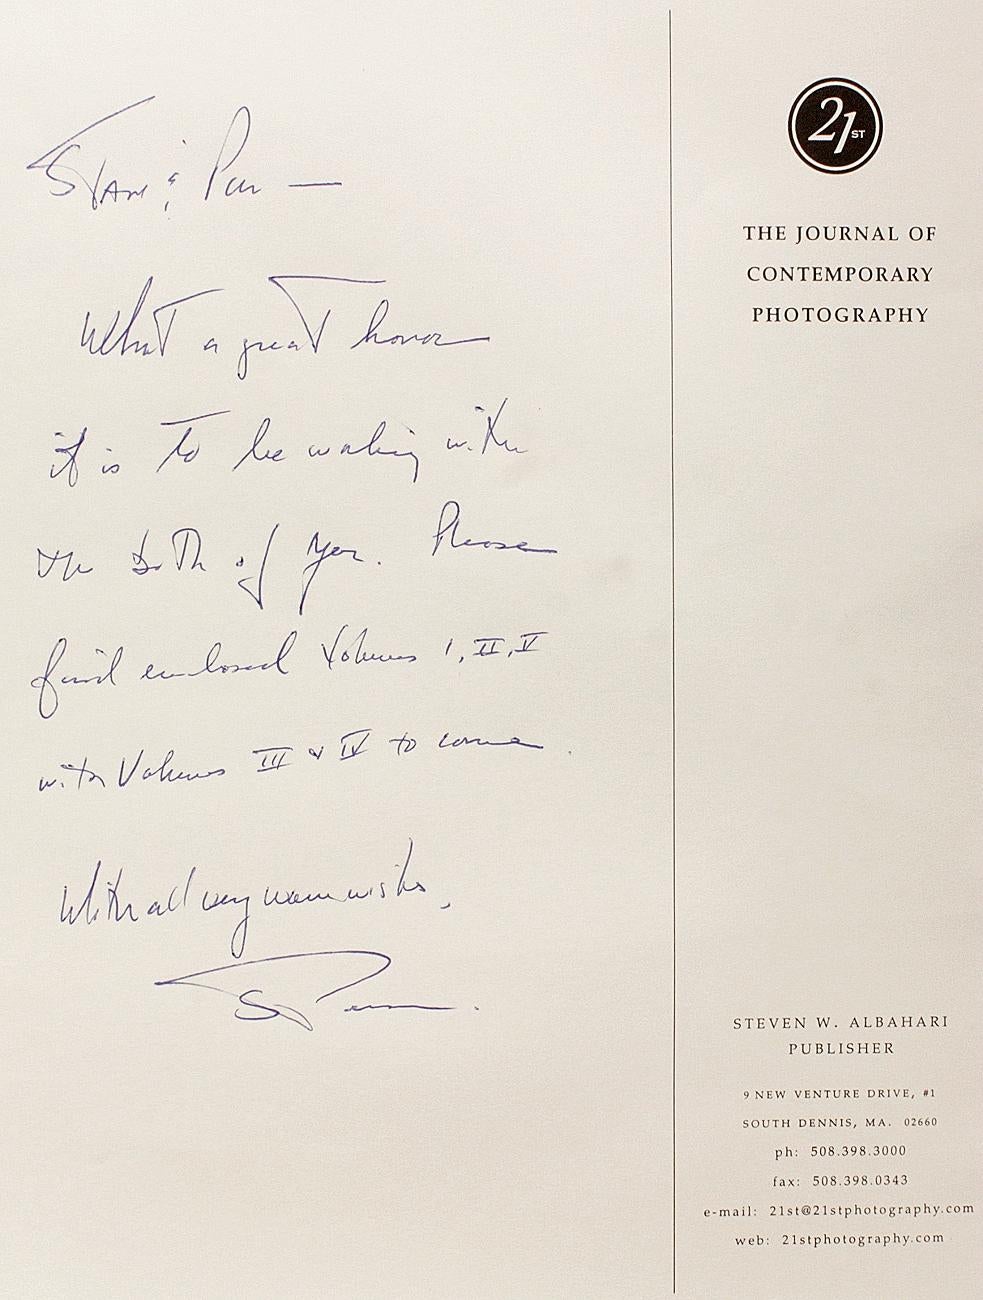 Stan & Pam —
What a great honor
it is to be working with
the both of you. Please
find enclosed Volumes I, II, V
with Volumes III & IV to come.
With all very warm wishes,
Steven.
21ST
THE JOURNAL OF
CONTEMPORARY
PHOTOGRAPHY
STEVEN W. ALBAHARI
PUBLISHER
9 NEW VENTURE DRIVE, #1
SOUTH DENNIS, MA. 02660
ph: 508.398.3000
fax: 508.398.0343
e-mail: 21st@21stphotography.com
web: 21stphotography.com